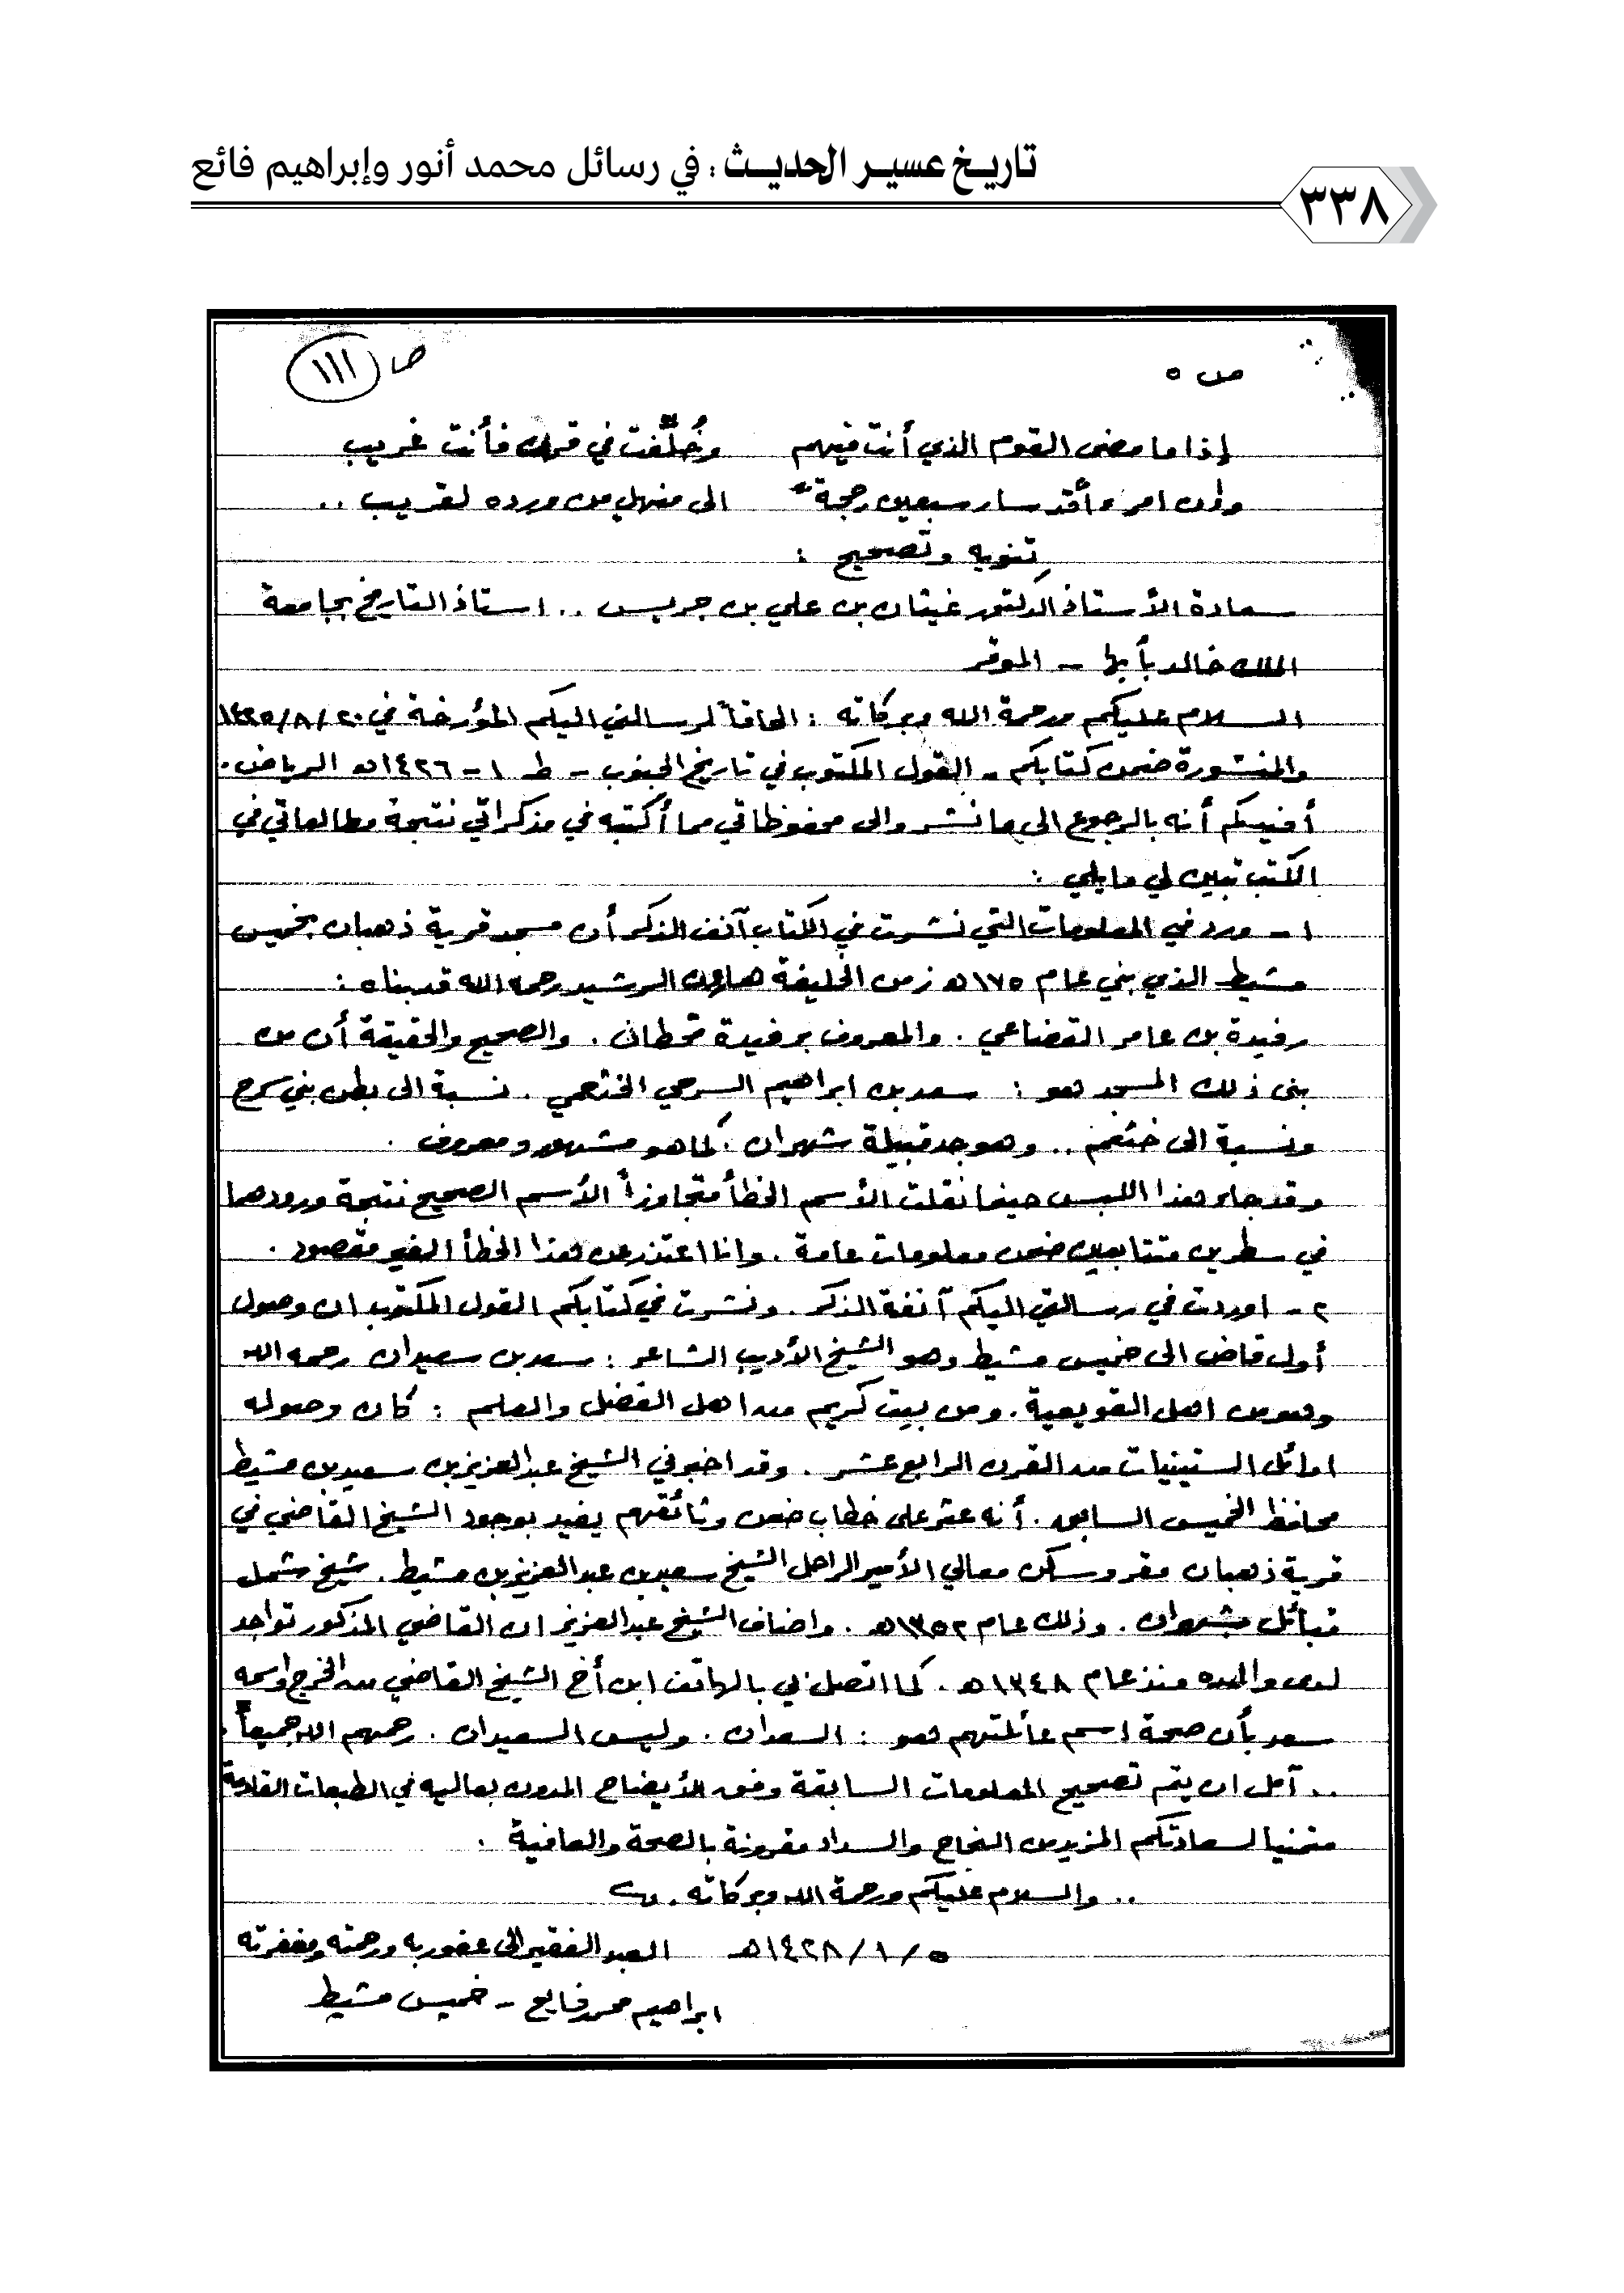 تاريخ عسير الحديث : في رسائل محمد أنور وإبراهيم فائع
٣٣٨
ص ٥
ص ١١١
إذا ما مضى القوم الذي أنت فيهم وخُلِّفت في قرن فأنت غريب
وإن امرءاً قد سار سبعين حجة الى منهل من ورده لقريب ..
تنويه وتصحيح :
سعادة الأستاذ الدكتور غيثان بن علي بن جريس .. استاذ التاريخ بجامعة
الملك خالد بأبها - الموقر
السلام عليكم ورحمة الله وبركاته : الحاقاً لرسالتي اليكم المؤرخة في ٢٠/٨/١٤٢٥
والمنشورة ضمن كتابكم - القول المكتوب في تاريخ الجنوب - ط ١ - ١٤٢٦هـ الرياض .
أفيدكم أنه بالرجوع الى ما نشر والى محفوظاتي مما أكتبه في مذكراتي نتيجة مطالعاتي في
الكتب تبين لي ما يلي :
١ - ورد في المعلومات التي نشرت في الكتاب آنف الذكر أن مسجد قرية ذهبان بخميس
مشيط الذي بني عام ١٧٥هـ زمن الخليفة هارون الرشيد رحمه الله قد بناه :
رفيدة بن عامر القضاعي . والمعروف برفيدة قحطان . والصحيح والحقيقة أن من
بنى ذلك المسجد هو : سعد بن ابراهيم السرحي الخثعمي . نسبة الى بطن بني سرح
ونسبة الى خثعم .. وهو جد قبيلة شهران . كما هو مشهور ومعروف .
وقد جاء هذا اللبس حينما نقلت الأسم الخطأ متجاوزاً الأسم الصحيح نتيجة ورودهما
في سطرين متتابعين ضمن معلومات عامة . وانا اعتذر عن هذا الخطأ الغير مقصود .
٢ - اوردت في رسالتي اليكم آنفة الذكر . ونشرت في كتابكم القول المكتوب ان وصول
أول قاض الى خميس مشيط وهو الشيخ الأديب الشاعر : سعد بن سعيدان رحمه الله
وهو من اهل القويعية . ومن بيت كريم من اهل الفضل والعلم : كان وصوله
اوائل الستينيات من القرن الرابع عشر . وقد اخبرني الشيخ عبدالعزيز بن سعيد بن مشيط
محافظ الخميس السابق . أنه عثر على خطاب ضمن وثائقهم يفيد بوجود الشيخ القاضي في
قرية ذهبان مقر وسكن معالي الأمير الراحل الشيخ سعيد بن عبدالعزيز بن مشيط . شيخ شمل
قبائل شهران . وذلك عام ١٣٥٢هـ . واضاف الشيخ عبدالعزيز ان القاضي المذكور تواجد
لدى والده منذ عام ١٣٤٨هـ . كما اتصل بي بالهاتف ابن أخ الشيخ القاضي من الخرج واسمه
سعد بأن صحة اسم عائلتهم هو : السعدان . وليس السعيدان . رحمهم الله جميعاً .
.. آمل ان يتم تصحيح المعلومات السابقة وفق الأيضاح المدون بعاليه في الطبعات القادمة
متمنيا لسعادتكم المزيد من النجاح والسداد مقرونة بالصحة والعافية .
.. والسلام عليكم ورحمة الله وبركاته .
٥/١/١٤٢٨هـ العبد الفقير الى عفو ربه ورحمته ومغفرته
ابراهيم محمد فايع - خميس مشيط